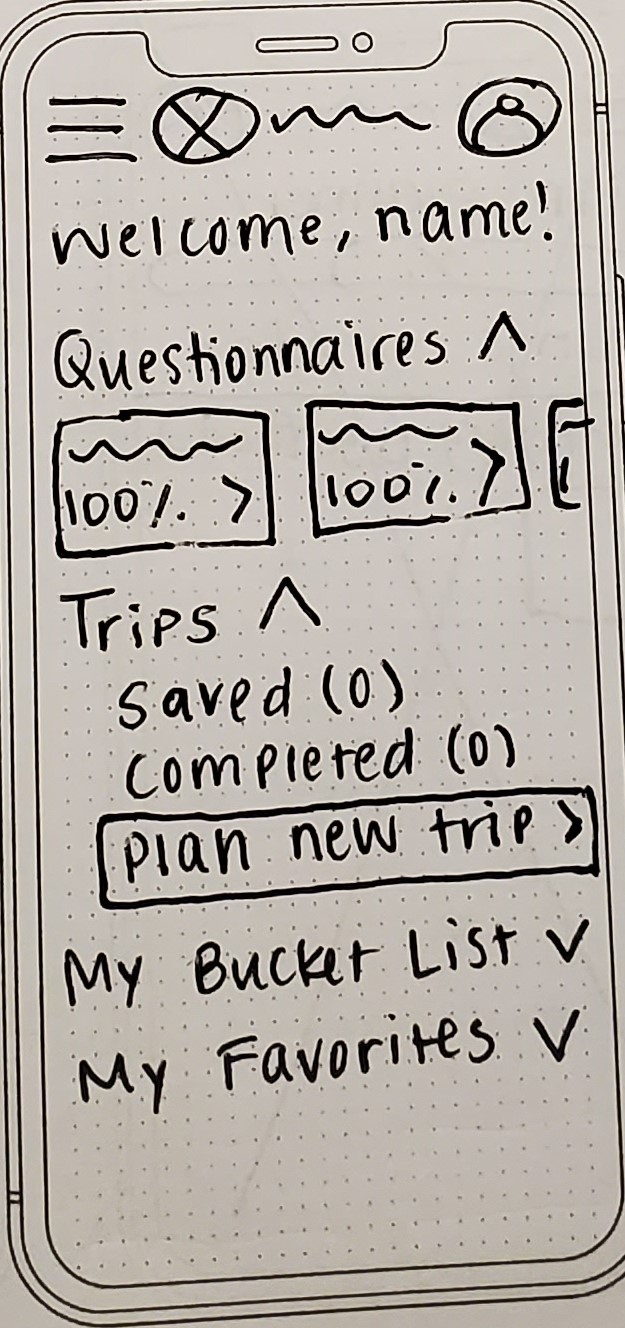 Welcome, name!
Questionnaires ^
100% > 100% >
Trips ^
Saved (0)
Completed (0)
Plan new trip >
My Bucket List v
My Favorites v